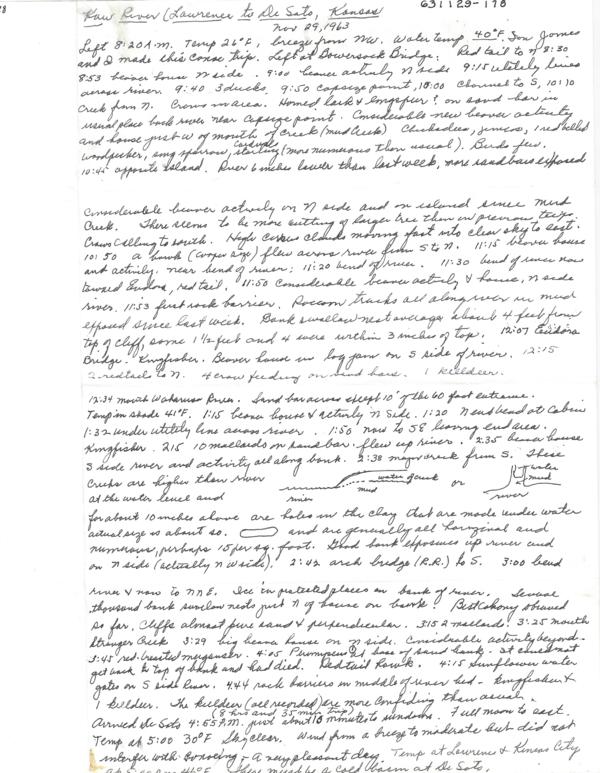 631129-178
Kaw River (Lawrence to De Soto, Kansas
Nov 29, 1963
Left 8:20 A.M. Temp 26°F, breeze from NW. Water temp 40°F. Jon James
and I made this canoe trip. Left at Bowersock Bridge. Red tail to N 8:30
8:53 beaver house N side. 9:00 beaver activity N side 9:15 utility lines
across river. 9:40 3 ducks, 9:50 capsize point, 10:00 channel to S, 10:10
Creek from N. Crows in area. Horned lark & longspur? on sand bar in
usual place back river near capsize point. Considerable new beaver activity
and house just W of mouth of Creek (Mud Creek) Chickadees, juncos, 1 red bellied
woodpecker, song sparrow, cardinals, starling (more numerous than usual). Birds few.
10:45 opposite island. River 6 inches lower than last week, more sandbars exposed
Considerable beaver activity on N side and on island since Mud
Creek. There seems to be more cutting of larger trees than on previous trips.
Crows calling to south. High cirrus clouds moving fast into clear sky to east.
10:50 a hawk flew across river from S to N. 11:15 beaver house
and activity. near bend of river; 11:20 bend of river. 11:30 bend of river now
toward Eudora, red tail. 11:50 Considerable beaver activity & house, N side
river. 11:53 first rock barrier. Raccoon tracks all along river in mud
exposed since last week. Bank swallow nest averages about 4 feet from
top of cliff, some 1 1/2 feet and 4 were within 3 inches of top. 12:07 Eudora
Bridge. Kingfisher. Beaver house in log jam on S side of river. 12:15
2 redtails to N. 4 crow feeding on sand bars. 1 killdeer.
12:34 mouth Wakarusa River. Sand bar across except 10' of the 60 foot entrance.
Temp in shade 41°F. 1:15 beaver house & activity N side. 1:20 N end bend at Cabin
1:32 under utility line across river. 1:50 now to SE leaving end area.
Kingfisher. 2:15 10 mallards on sandbar flew up river. 2:35 beaver house
S side river and activity all along bank. 2:38 major creek from S. These
Creeks are higher than river
at the water level and
water of creek
mud
river
or
water
mud
river
for about 10 inches above are holes in the clay that are made under water
actual size is about so. and are generally all horizontal and
numerous, perhaps 15 per sq. foot. Good bank exposures up river and
on N side (actually NW side). 2:42 arch bridge (R.R.) to S. 3:00 bend
river & now to NNE. Ice in protected places on bank of river. Several
thousand bank swallow nests just N of house on bank. Best colony observed
so far. Cliffs almost pure sand & perpendicular. 3:15 2 mallards. 3:25 mouth
Stranger Creek 3:29 big beaver house on N side. Considerable activity beyond.
3:45 red-breasted merganser. 4:05 at base of sand bank. It could not
get back to top of bank and had died. Redtail hawk. 4:15 Sunflower water
gates on S side River. 4:44 rock barriers in middle of river bed - kingfisher &
1 killdeer. The killdeer (all recorded) are more confiding than usual.
(8 hrs and 35 min trip)
Arrived De Soto 4:55 P.M. just about 10 minutes to sundown. Full moon to east.
Temp at 5:00 30°F Sky clear. Wind from a breeze to moderate but did not
interfer with canoeing - A very pleasant day. Temp at Lawrence & Kansas City
There must be a cold basin at De Soto.